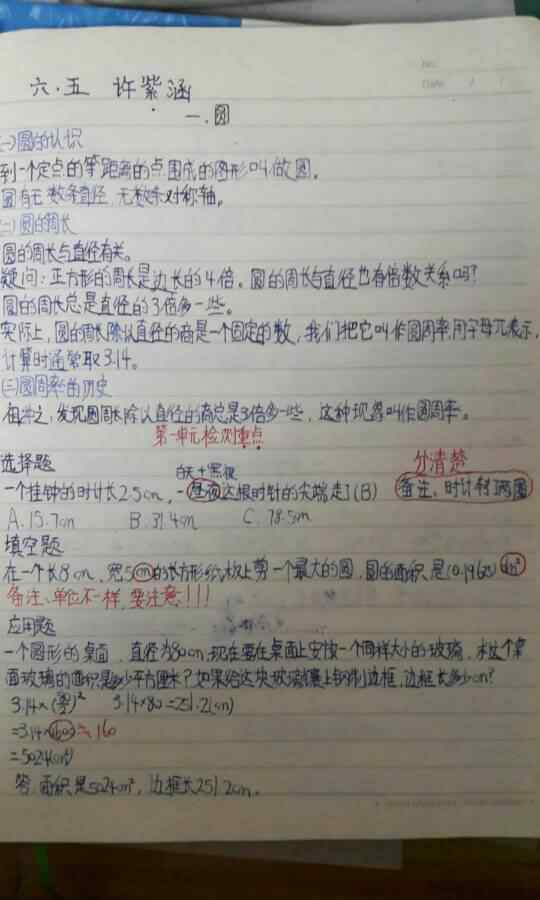 No.
Date / /
六·五 许紫涵
一.圆
(一)圆的认识
到一个定点的等距离的点围成的图形叫做圆。
圆有无数条直径,无数条对称轴。
(二)圆的周长
圆的周长与直径有关。
疑问:正方形的周长是边长的4倍。圆的周长与直径也有倍数关系吗?
圆的周长总是直径的3倍多一些。
实际上,圆的周长除以直径的商是一个固定的数,我们把它叫作圆周率,用字母π表示,
计算时通常取3.14。
(三)圆周率的历史
,发现圆周长除以直径的商总是3倍多一些,这种现象叫作圆周率。
第一单元检测重点
选择题 分清楚
白天+黑夜
一个挂钟的时针长2.5cm,一昼夜这根时针的尖端走了(B) 备注:时针转两圈
A.15.7cm B.31.4cm C.78.5m
填空题
在一个长8cm,宽5cm的长方形纸板上剪一个最大的圆,圆的面积是(0.1962)dm²
备注:单位不一样,要注意!!!
应用题
一个圆形的桌面,直径为80cm,现在要在桌面上安放一个同样大小的玻璃,求这个桌
面玻璃的面积是多少平方厘米?如果给这块玻璃镶上钢制边框,边框长多少cm?
3.14×(80/2)² 3.14×80=251.2(cm)
=3.14×1600 160
=5024(cm²)
答:面积是5024cm²,边框长251.2cm。